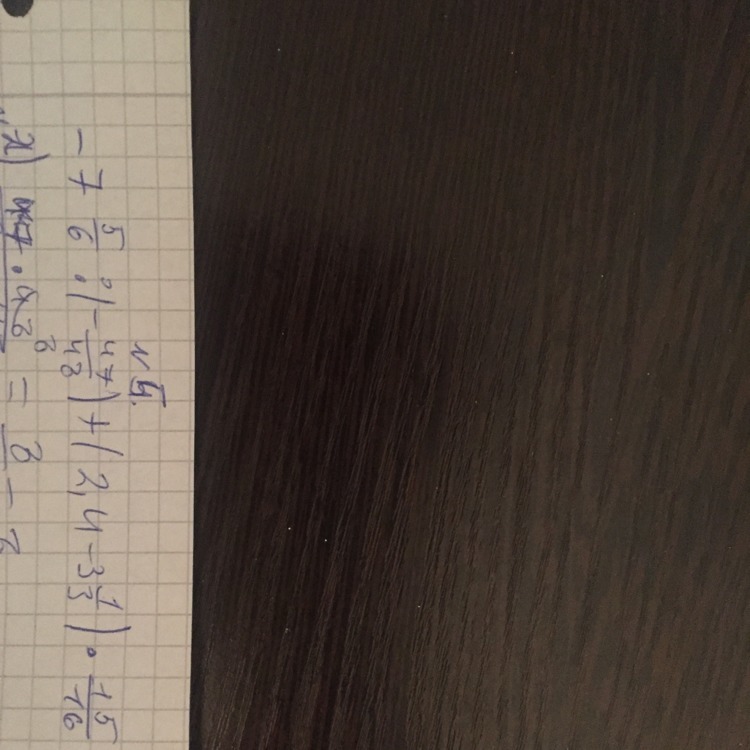 №5.
-7 5/6 : (-47/48) + (2,4 - 3 1/3) · 15/16
47 · 48 8 = 8 -